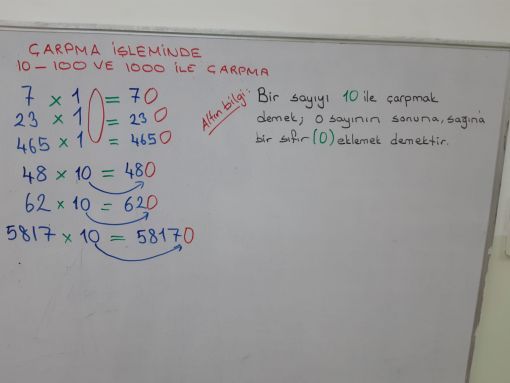 ÇARPMA İŞLEMİNDE
10 – 100 VE 1000 İLE ÇARPMA
7 x 10 = 70
23 x 10 = 230
465 x 10 = 4650
48 x 10 = 480
62 x 10 = 620
5817 x 10 = 58170
Altın bilgi: Bir sayıyı 10 ile çarpmak
demek; o sayının sonuna, sağına
bir sıfır (0) eklemek demektir.